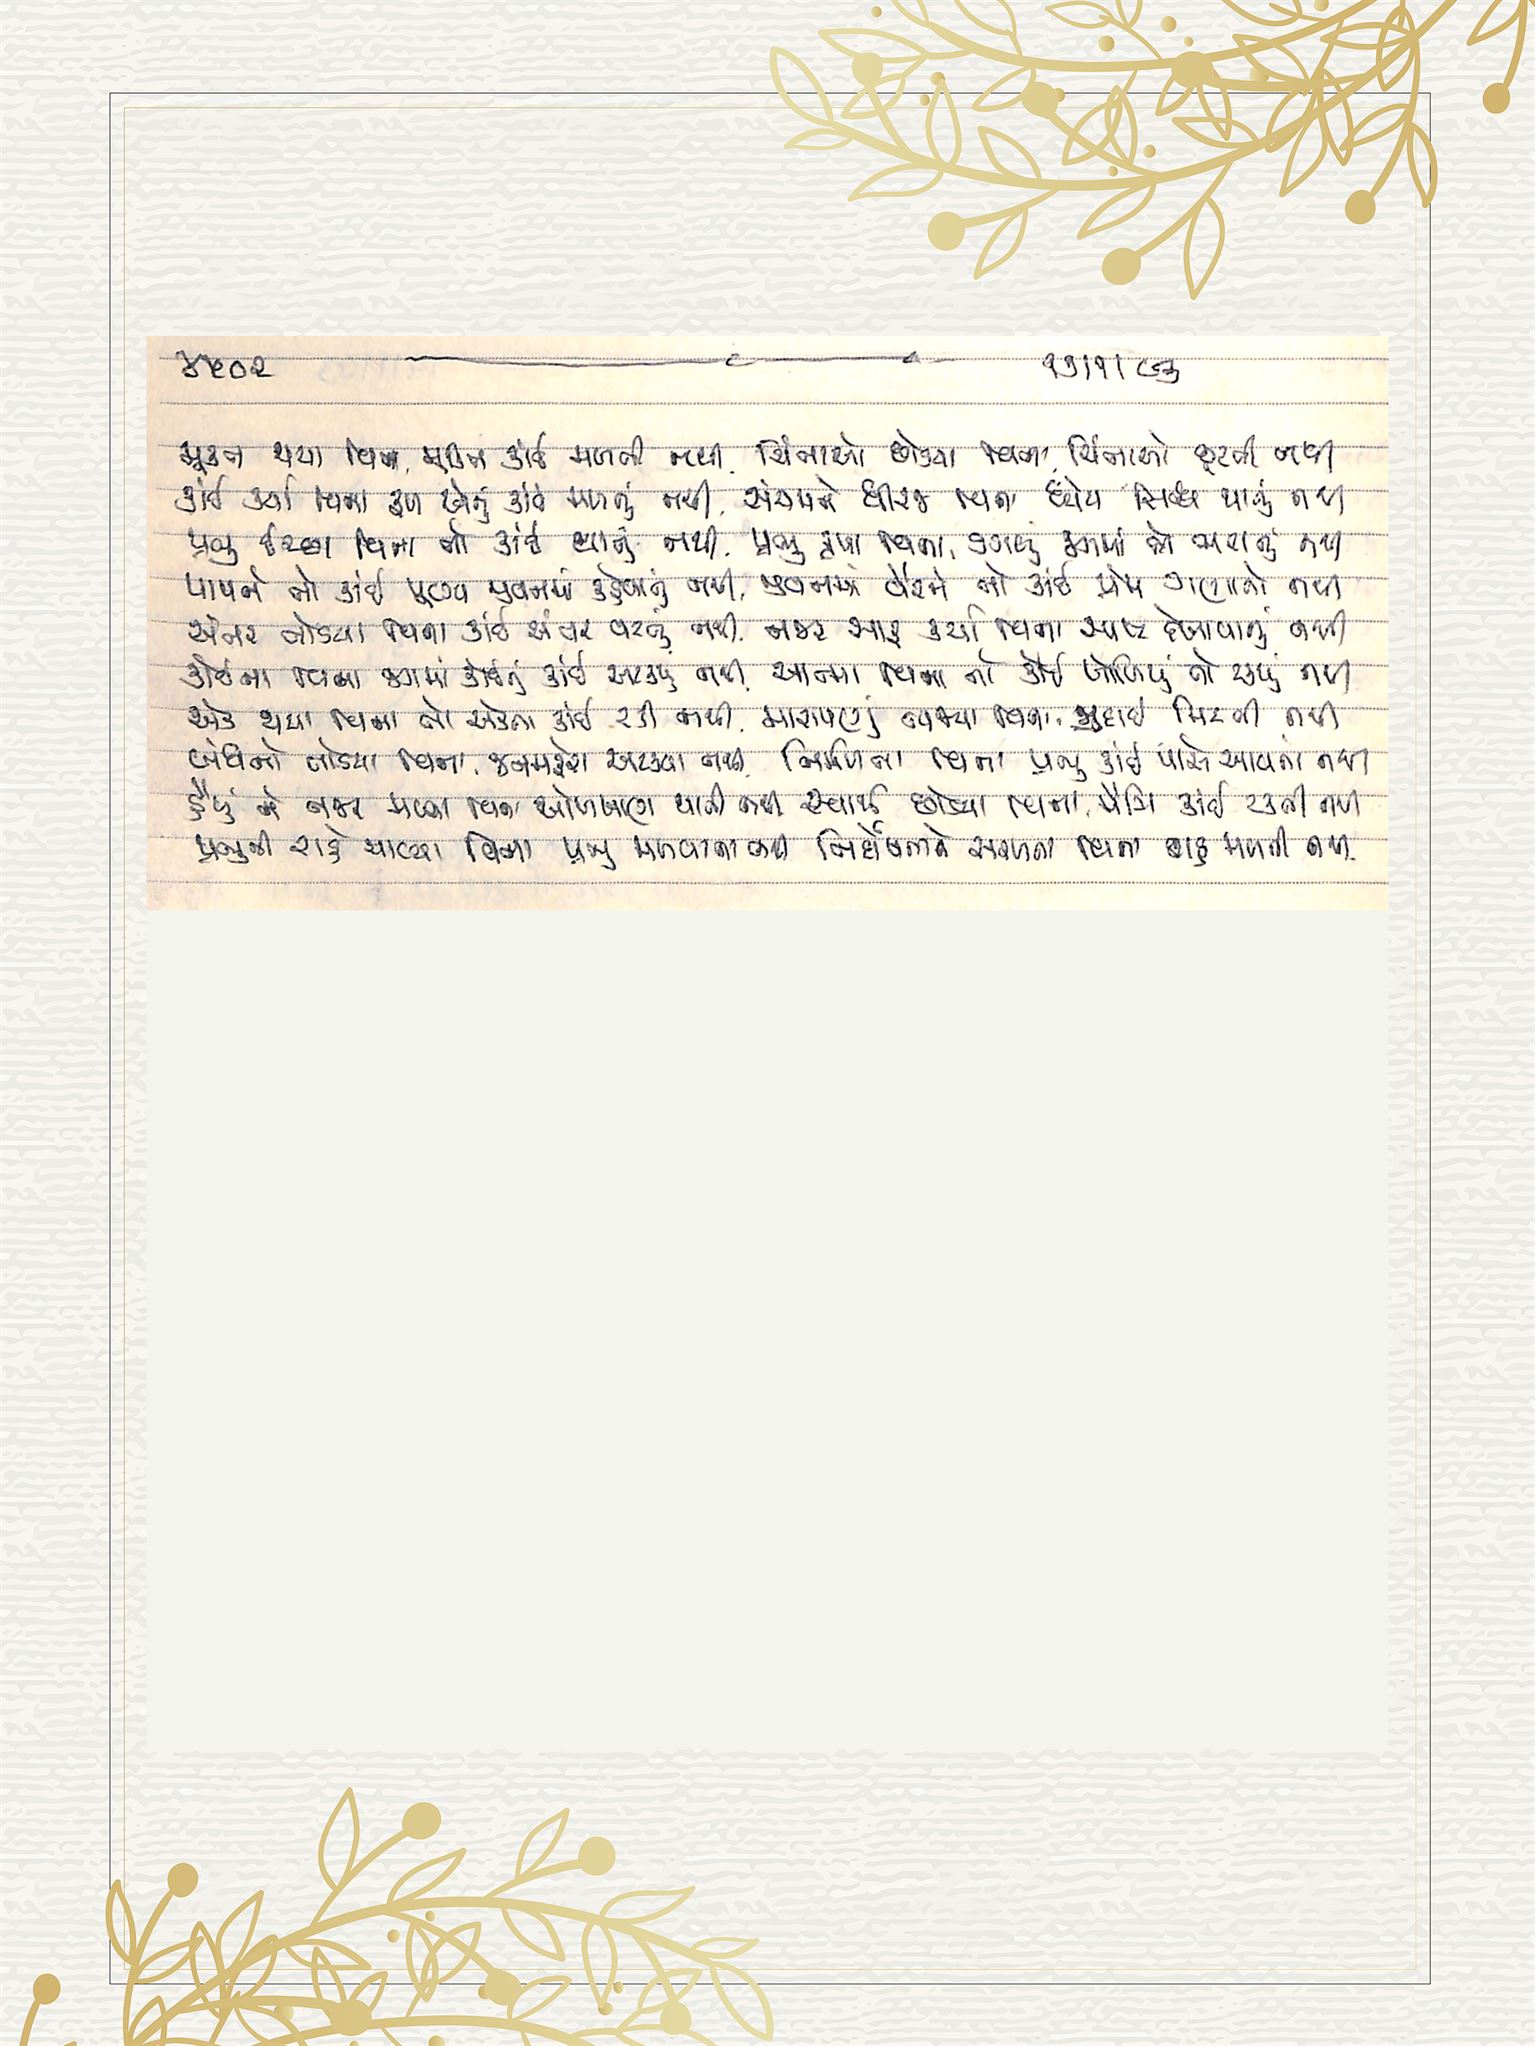 ૪૫૦૨ ૧૭/૧/૯૩
મુક્ત થયા વિના, મુક્તિ કાંઈ મળતી નથી, ચિંતાઓ છોડયા વિના, ચિંતાઓ છૂટતી નથી
કાંઈ કર્યા વિના ફળ એનું કાંઈ મળતું નથી, સંયમને ધીરજ વિના ધ્યેય સિધ્ધ થાતું નથી
પ્રભુ ઈચ્છા વિના તો કાંઈ થાતું નથી, પ્રભુ કૃપા વિના, ડગલું જગમાં તો ભરાતું નથી
પાપને તો કાંઈ પુણ્ય જીવનમાં કહેવાતું નથી, જીવનમાં વૈરને તો કાંઈ પ્રેમ ગણાતો નથી
અંતર તોડયા વિના કાંઈ અંતર ઘટતું નથી, નજર સાફ કર્યા વિના સ્પષ્ટ દેખાવાનું નથી
કોઈના વિના જગમાં કોઈનું કાંઈ અટક્યું નથી, આત્મા વિના તો કોઈ ખોળિયું તો રહ્યું નથી
એક થયા વિના તો એકતા કાંઈ ટકી નથી, મારાપણું ત્યજ્યા વિના, જુદાઈ મિટતી નથી
બંધનો તોડયા વિના, જનમફેરા અટક્યા નથી, નિર્મળતા વિના પ્રભુ કાંઈ પાસે આવતા નથી
હૈયું ને નજર મળ્યા વિના ઓળખાણ થાતી નથી, સ્વાર્થ છોડયા વિના, મૈત્રી કાંઈ ટકતી નથી
પ્રભુની રાહે ચાલ્યા વિના પ્રભુ મળવાના નથી, નિર્દોષતાને સરળતા વિના રાહ મળતી નથી.